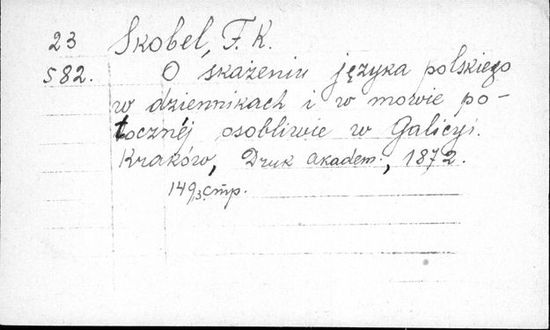 23 Skobel, F. K.
582. O skażeniu języka polskiego
w dziennikach i w mowie po-
tocznéj osobliwie w Galicyi.
Kraków, Druk akadem., 1872.
стр.